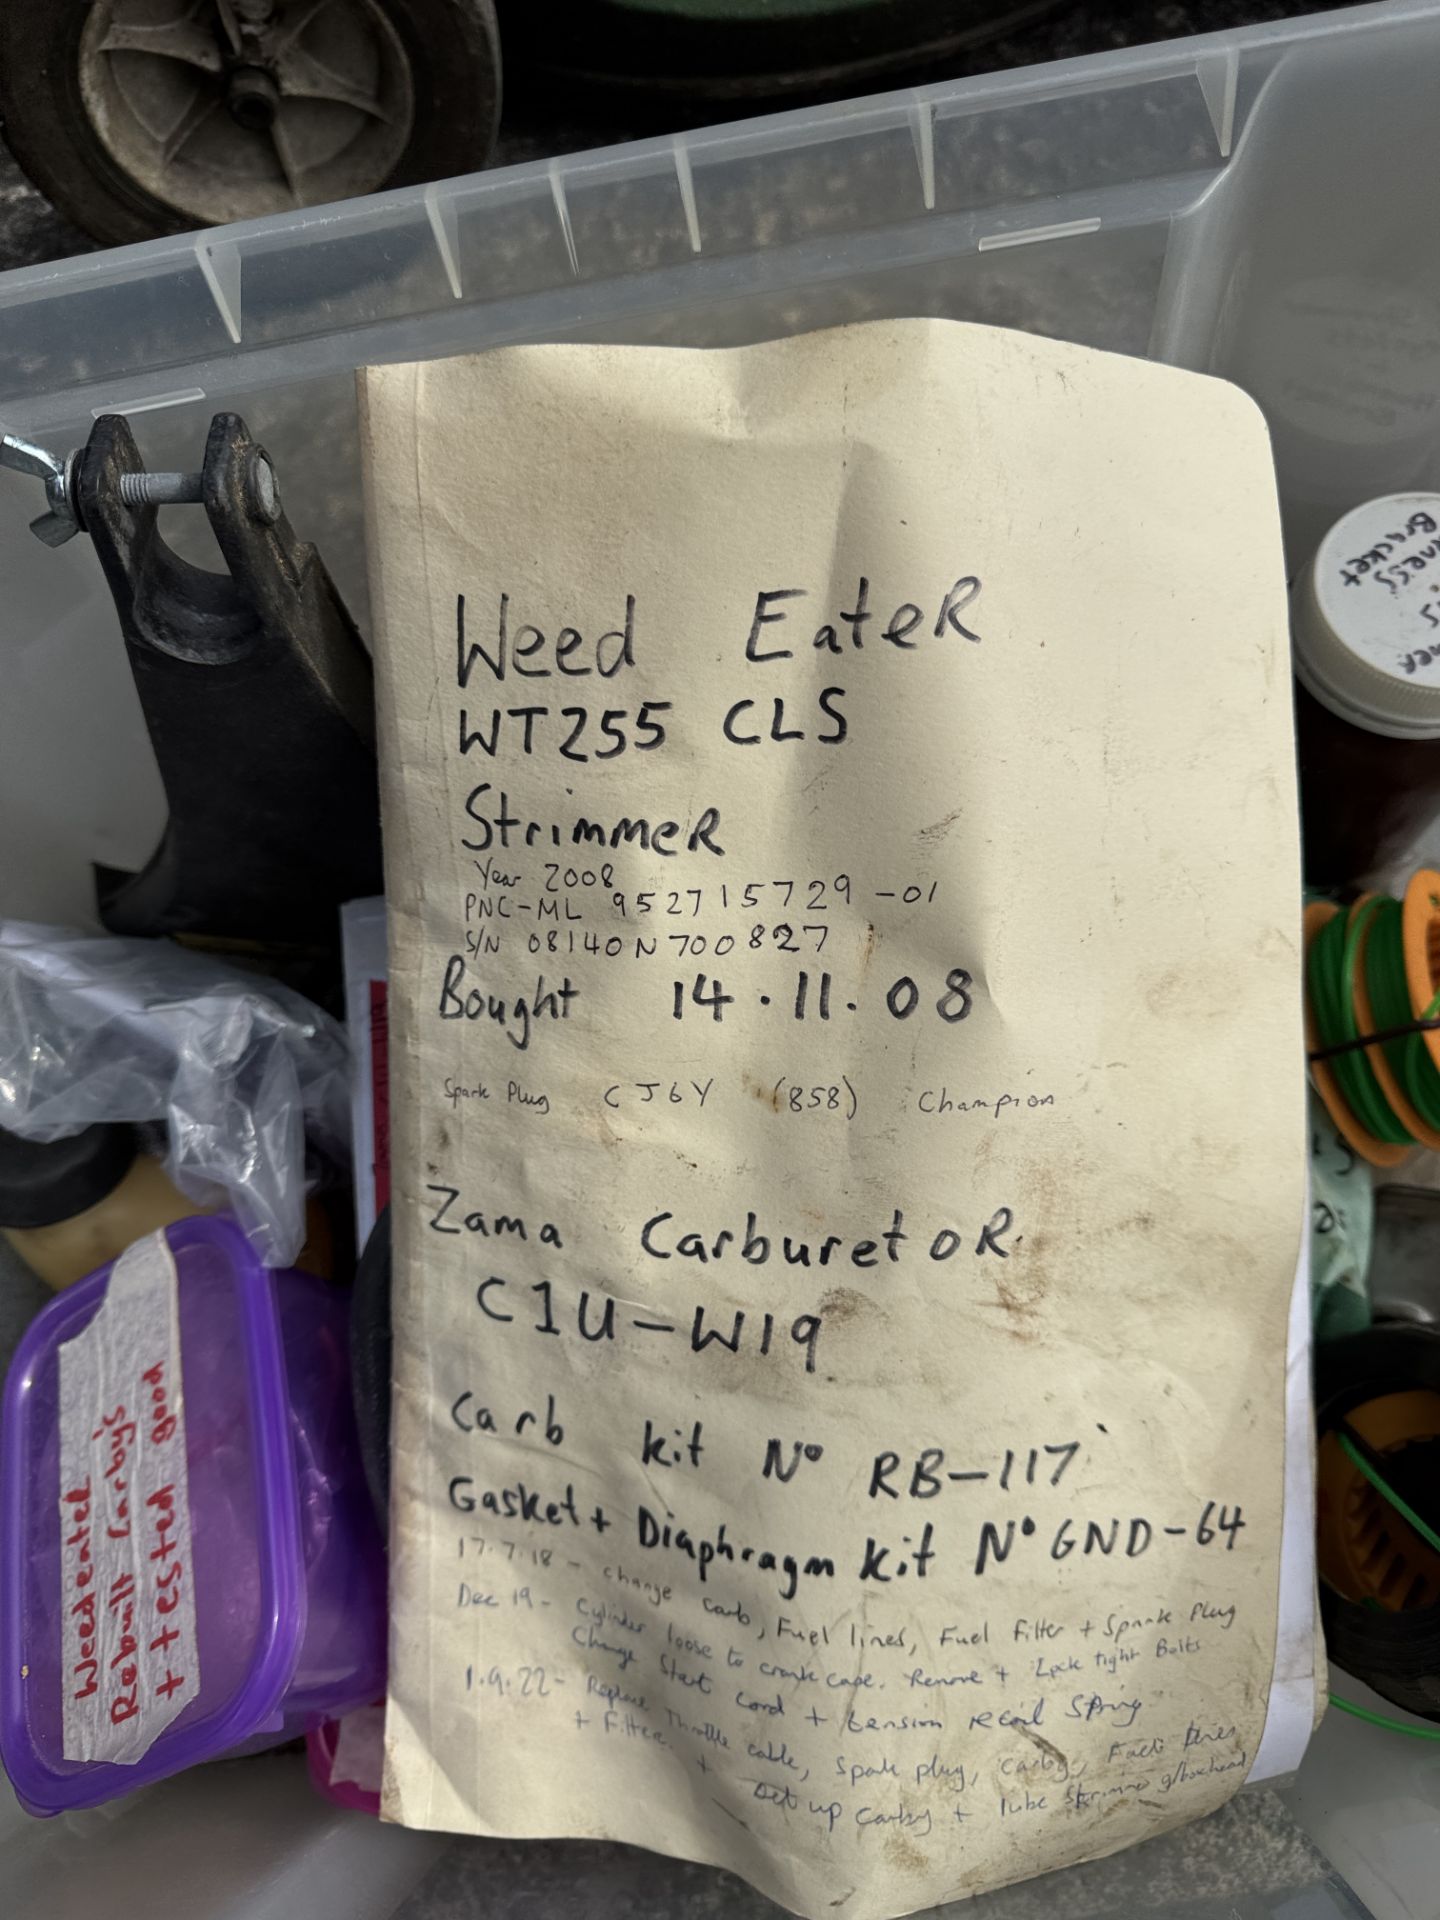 Weed EateR
WT255 CLS
StrimmeR
Year 2008
PNC-ML 952715729-01
S/N 08140N700827
Bought 14.11.08
Spark Plug CJ6Y (858) Champion
Zama CarburetoR
C1U-W19
Carb kit Nº RB-117
Gasket + Diaphragm kit Nº GND-64
17.7.18 - change carb, Fuel lines, Fuel Filter + Spark Plug
Dec 19 - Cylinder loose to crank case. Remove + Lock tight Bolts
Change Start cord + tension recoil Spring
1.9.22 - Replace Throttle cable, Spark plug, carby, Fuel lines
+ Filter. + Set up carby + lube Strimmer g/box head
Weedeater
Rebuilt Carby's
+ tested good
Bracket